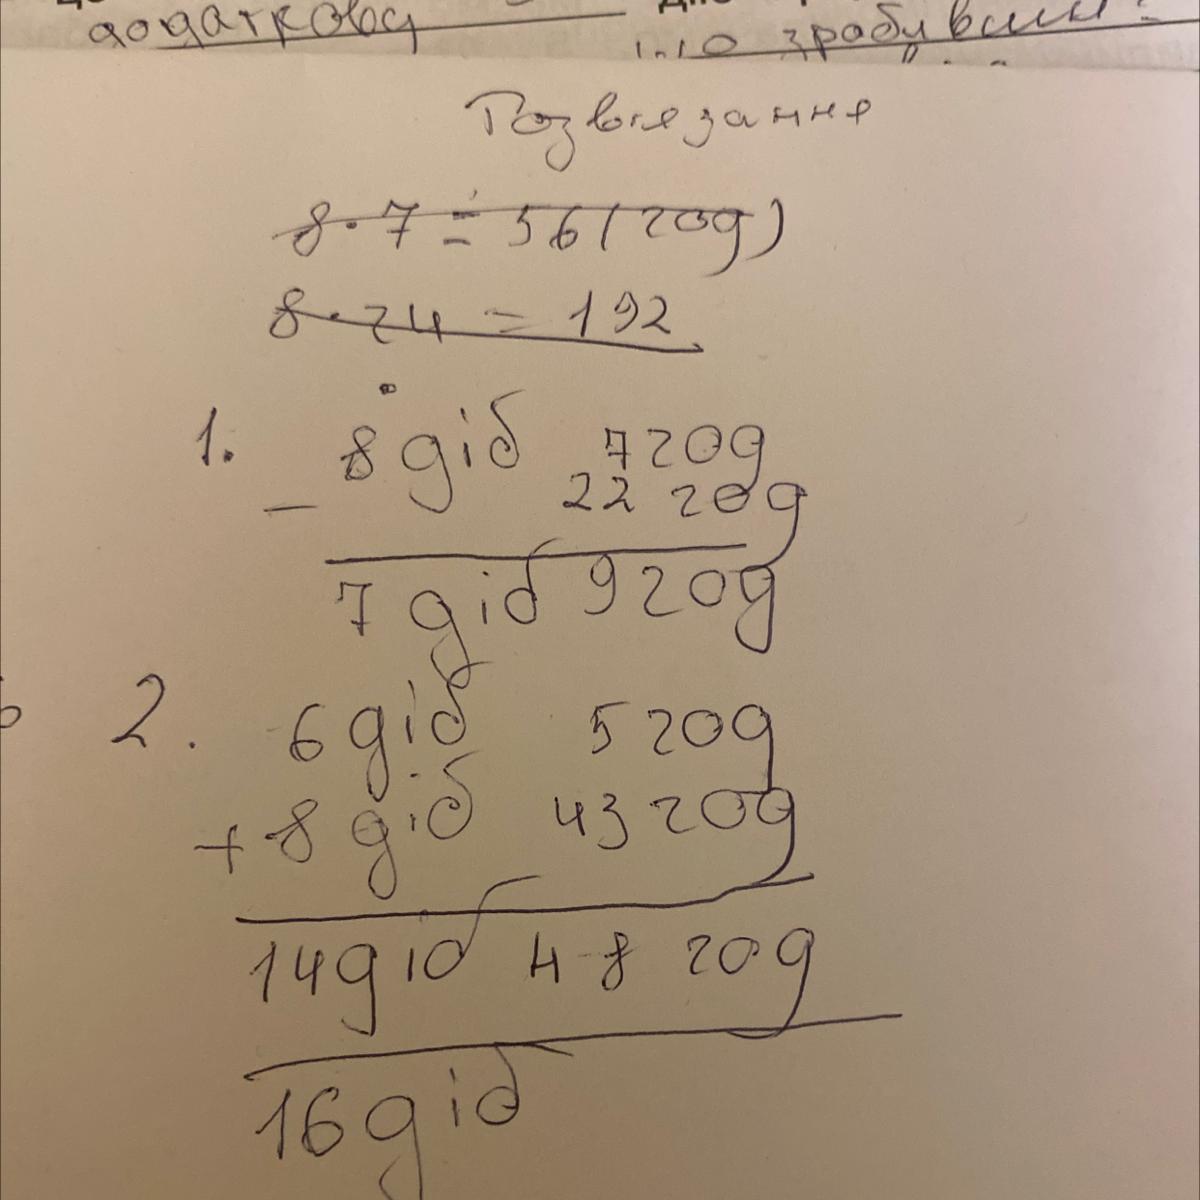 додаткову
що зробивши
Розвязання
8·7 = 56(год)
8·24 = 192
1. 8 діб 7 год
- 22 год
7 діб 9 год
2. 6 діб 5 год
+ 8 діб 43 год
14 діб 48 год
16 діб